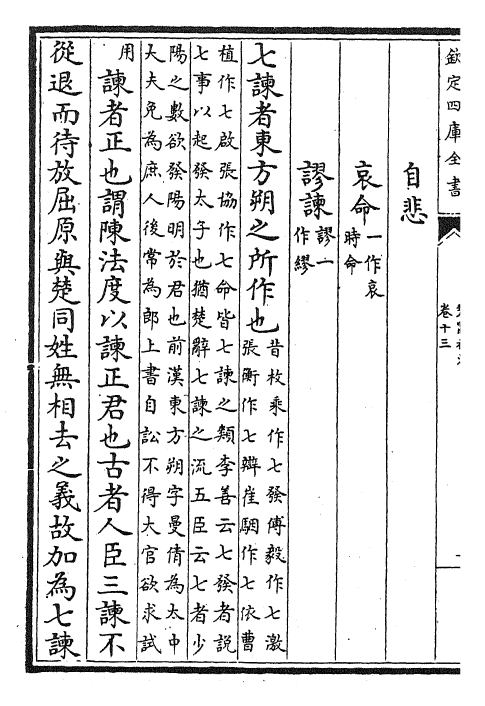 欽定四庫全書
卷十三
自悲
哀命
一作哀
時命
謬諫
謬一
作繆
七諫者東方朔之所作也
昔枚乘作七發傅毅作七激
張衡作七辯崔駰作七依曹
植作七啟張協作七命皆七諫之類李善云七發者說
七事以起發太子也猶楚辭七諫之流五臣云七者少
陽之數欲發陽明於君也前漢東方朔字曼倩為太中
大夫免為庶人後常為郎上書自訟不得大官欲求試
用
諫者正也謂陳法度以諫正君也古者人臣三諫不
從退而待放屈原與楚同姓無相去之義故加為七諫